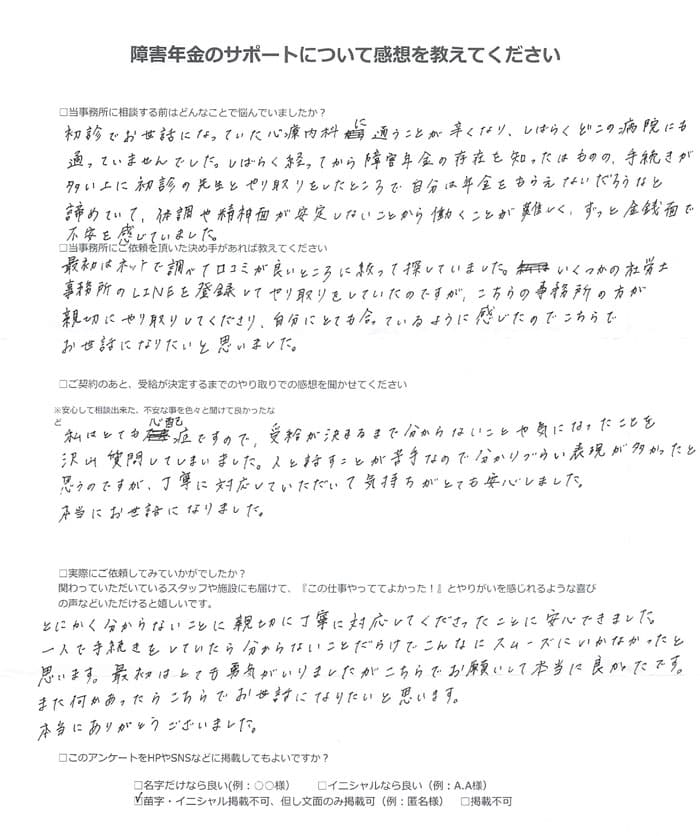 障害年金のサポートについて感想を教えてください
□当事務所に相談する前はどんなことで悩んでいましたか？
初診でお世話になっていた心療内科に通うことが辛くなり、しばらくどこの病院にも
通っていませんでした。しばらく経ってから障害年金の存在を知ったはものの、手続きが
多い上に初診の先生とやり取りをしたところで自分は年金をもらえないだろうなと
諦めていて、体調や精神面が安定しないことから働くことが難しく、ずっと金銭面で
不安を感じていました。
□当事務所にご依頼を頂いた決め手があれば教えてください
最初はネットで調べて口コミが良いところに絞って探していました。いくつかの社労士
事務所のLINEを登録してやり取りをしていたのですが、こちらの事務所の方が
親切にやり取りしてくださり、自分にとても合っているように感じたのでこちらで
お世話になりたいと思いました。
□ご契約のあと、受給が決定するまでのやり取りでの感想を聞かせてください
※安心して相談出来た、不安な事を色々と聞けて良かったな
ど
私はとても心配症ですので、受給が決まるまで分からないことや気になったことを
沢山質問してしまいました。人と話すことが苦手なので分かりづらい表現が多かったと
思うのですが、丁寧に対応していただいて気持ちがとても安心しました。
本当にお世話になりました。
□実際にご依頼してみていかがでしたか？
関わっていただいているスタッフや施設にも届けて、『この仕事やっててよかった！』とやりがいを感じれるような喜び
の声などいただけると嬉しいです。
とにかく分からないことに親切に丁寧に対応してくださったことに安心できました。
一人で手続きをしていたら分からないことだらけでこんなにスムーズにいかなかったと
思います。最初はとても勇気がいりましたがこちらでお願いして本当に良かったです。
また何かあったらこちらでお世話になりたいと思います。
本当にありがとうございました。
□このアンケートをHPやSNSなどに掲載してもよいですか？
□名字だけなら良い(例：○○様) □イニシャルなら良い（例：A.A様）
☑苗字・イニシャル掲載不可、但し文面のみ掲載可（例：匿名様） □掲載不可